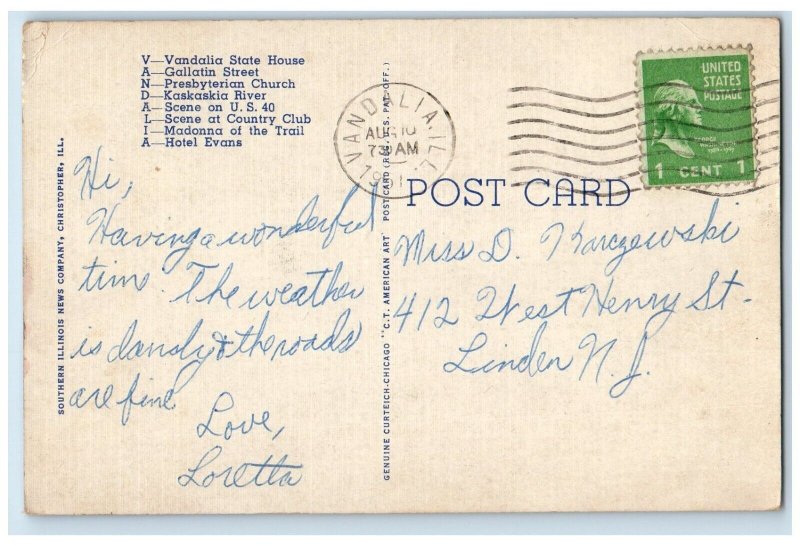 V—Vandalia State House
A—Gallatin Street
N—Presbyterian Church
D—Kaskaskia River
A—Scene on U.S. 40
L—Scene at Country Club
I—Madonna of the Trail
A—Hotel Evans
SOUTHERN ILLINOIS NEWS COMPANY, CHRISTOPHER, ILL.
Hi,
Having a wonderful
time. The weather
is dandy & the roads
are fine
Love,
Loretta
GENUINE CURTEICH-CHICAGO "C.T. AMERICAN ART POST CARD (REG. U.S. PAT. OFF.)
VANDALIA, ILL.
AUG 10
AM
1951
UNITED
STATES
POSTAGE
1 CENT 1
POST CARD
Miss D. Karczewski
412 West Henry St.
Linden N.J.